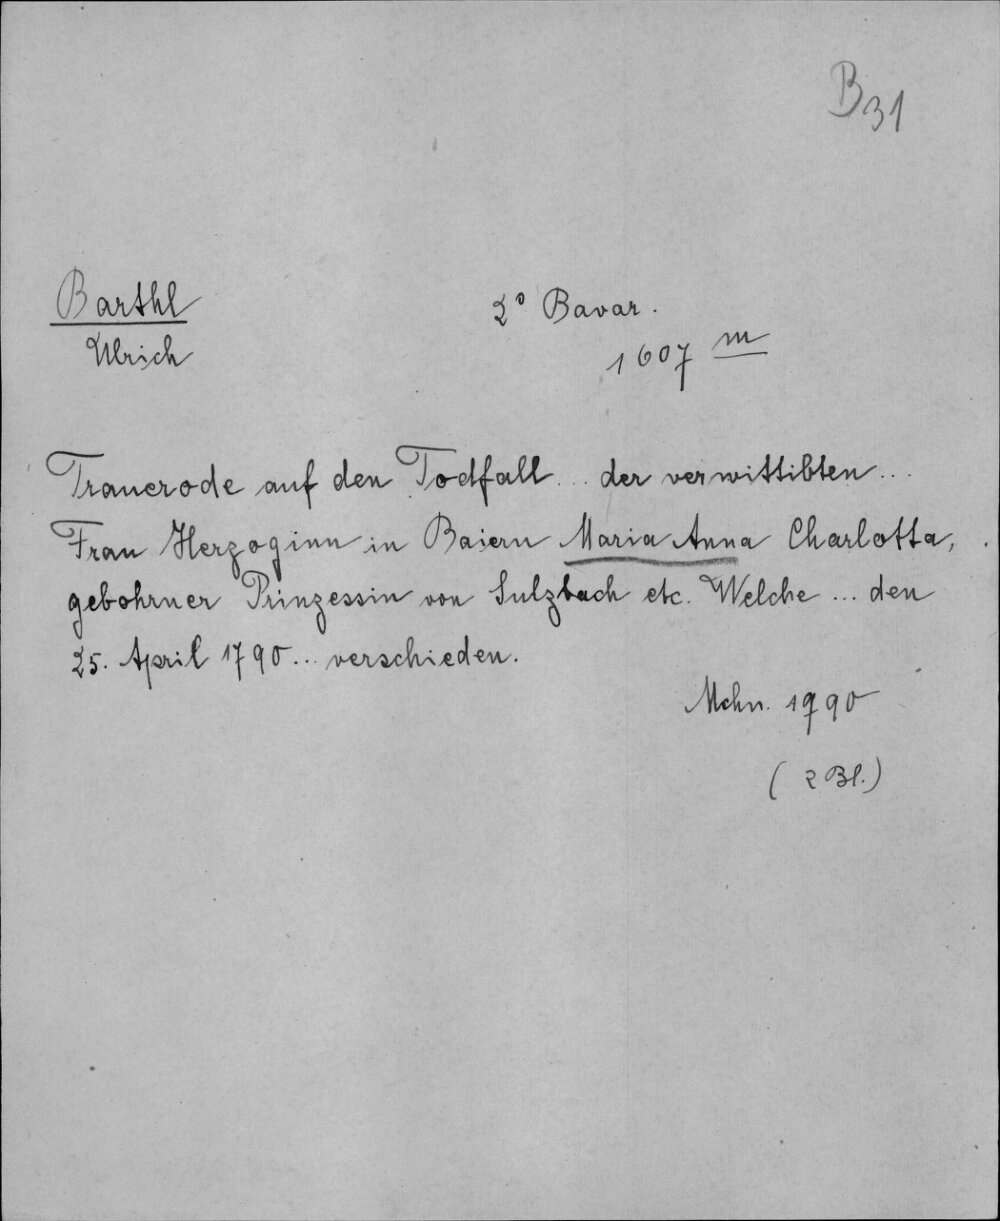 B 31
Barthl
2° Bavar.
Ulrich
1607 m
Trauerode auf den Todfall ... der verwittibten ...
Frau Herzoginn in Baiern Maria Anna Charlotta,
gebohrner Prinzessin von Sulzbach etc. Welche ... den
25. April 1790 ... verschieden.
Mchn. 1790
(2 Bl.)